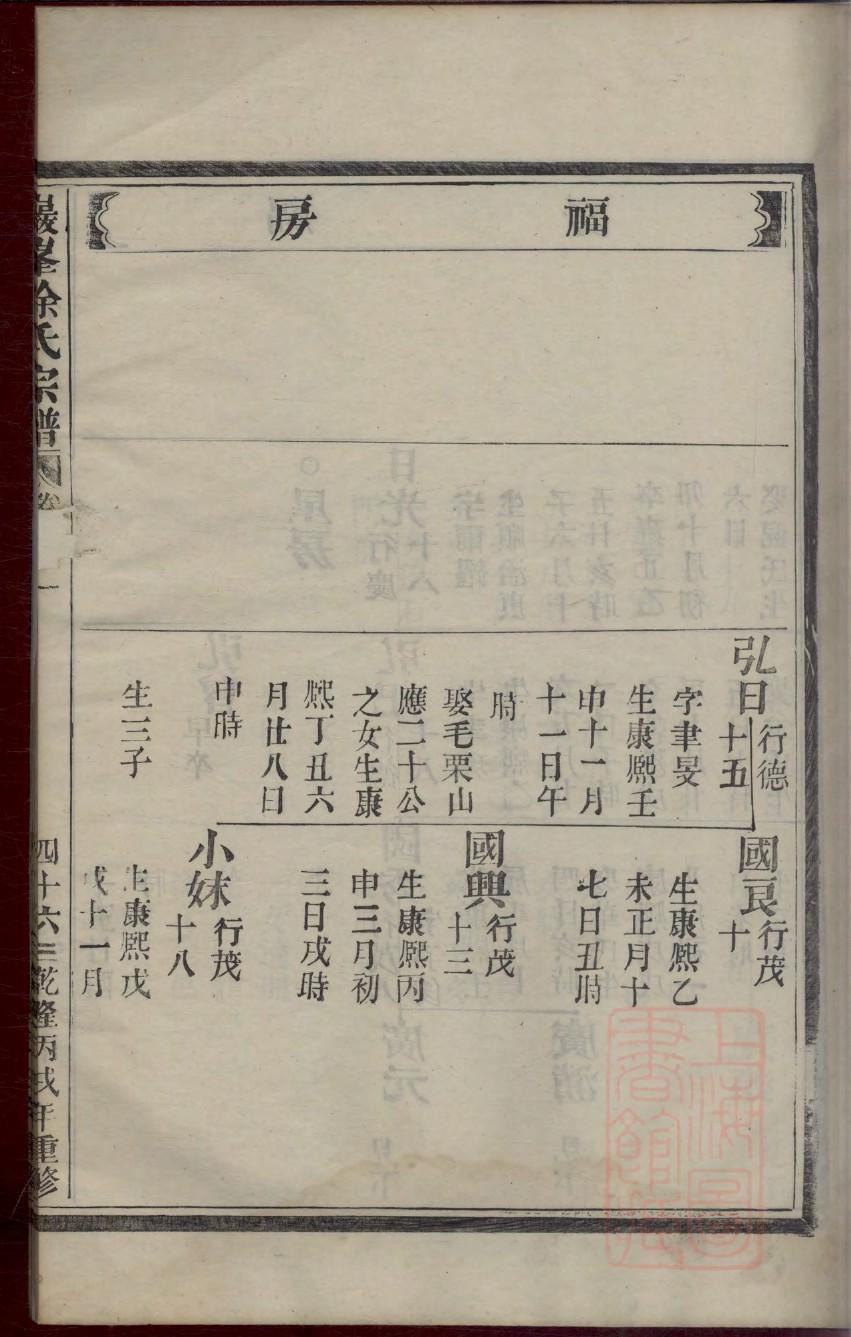 福房
弘日
行德
十五
字聿旻
生康熈壬
申十一月
十一日午
時
娶毛栗山
應二十公
之女生康
熈丁丑六
月廿八日
申時
生三子
國良
行茂
十
生康熈乙
未正月十
七日丑時
國興
行茂
十三
生康熈丙
申三月初
三日戌時
小妹
行茂
十八
生康熈戊
戌十一月
巖峯徐氏宗譜
卷
一
四十六
乾隆丙戌年重修
上海圖書館藏